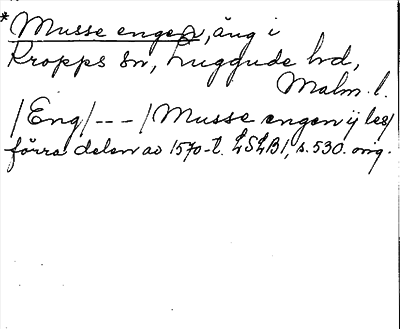 *Musse engen, äng i
Kropps sn, Luggude hd,
Malm. l.
/Eng/---/Musse engen ij les/
förra delen av 1570-t. LSLB1, s. 530. orig.